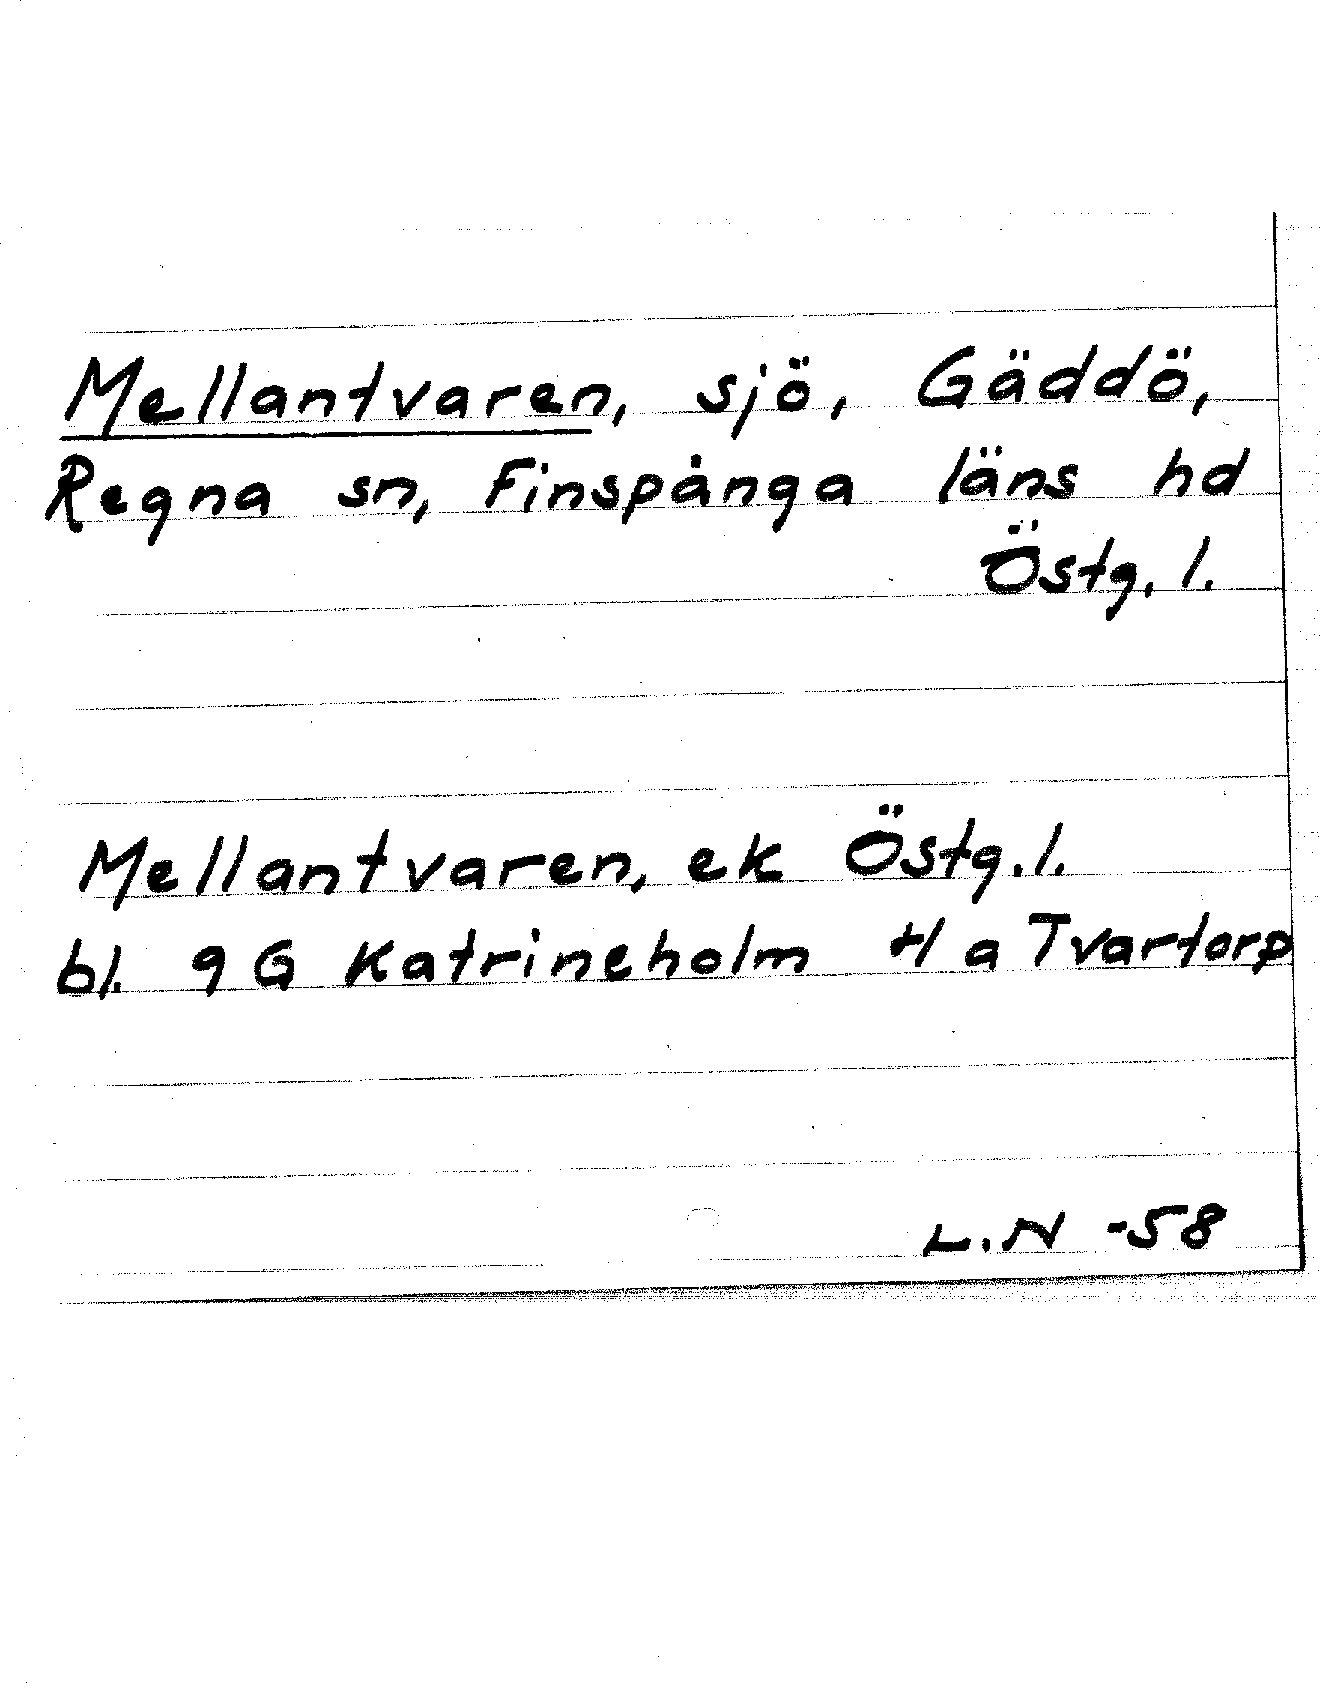 Mellantvaren, sjö, Gäddö,
Regna sn, Finspånga läns hd
Östg. l.
Mellantvaren, ek Östg. l.
bl. 9 G Katrineholm 4 a Tvartorp
L.N -58